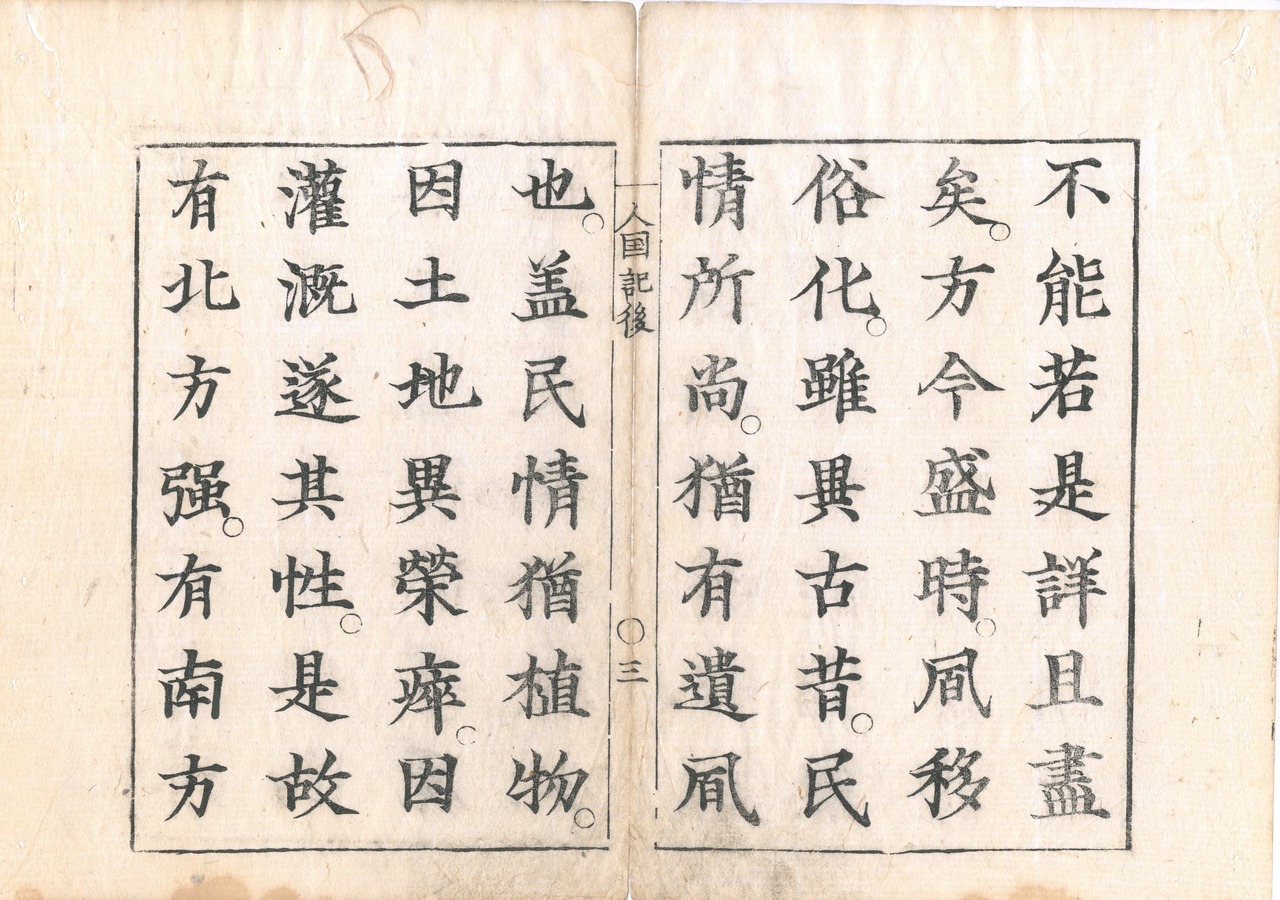 不能若是詳且盡
矣。方今盛時。凬移
俗化。雖異古昔。民
情所尚。猶有遺凬
人国記後
○三
也。盖民情猶植物。
因土地異榮瘁。因
灌溉遂其性。是故
有北方强。有南方